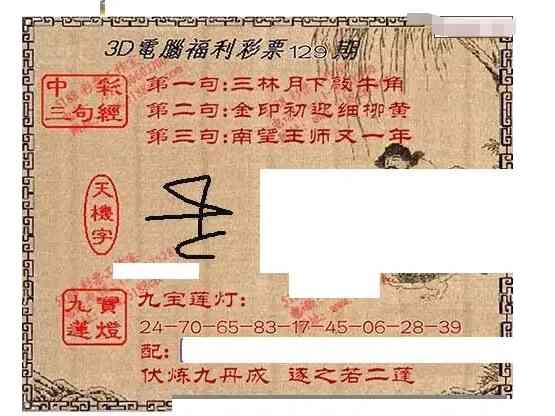 3D電腦福利彩票129期
中彩三句經
第一句:三林月下敲牛角
第二句:金印初迎细柳黄
第三句:南望王师又一年
天機字
九寶蓮燈
九宝莲灯:
24-70-65-83-17-45-06-28-39
配:
伏炼九丹成 逐之若二蓬